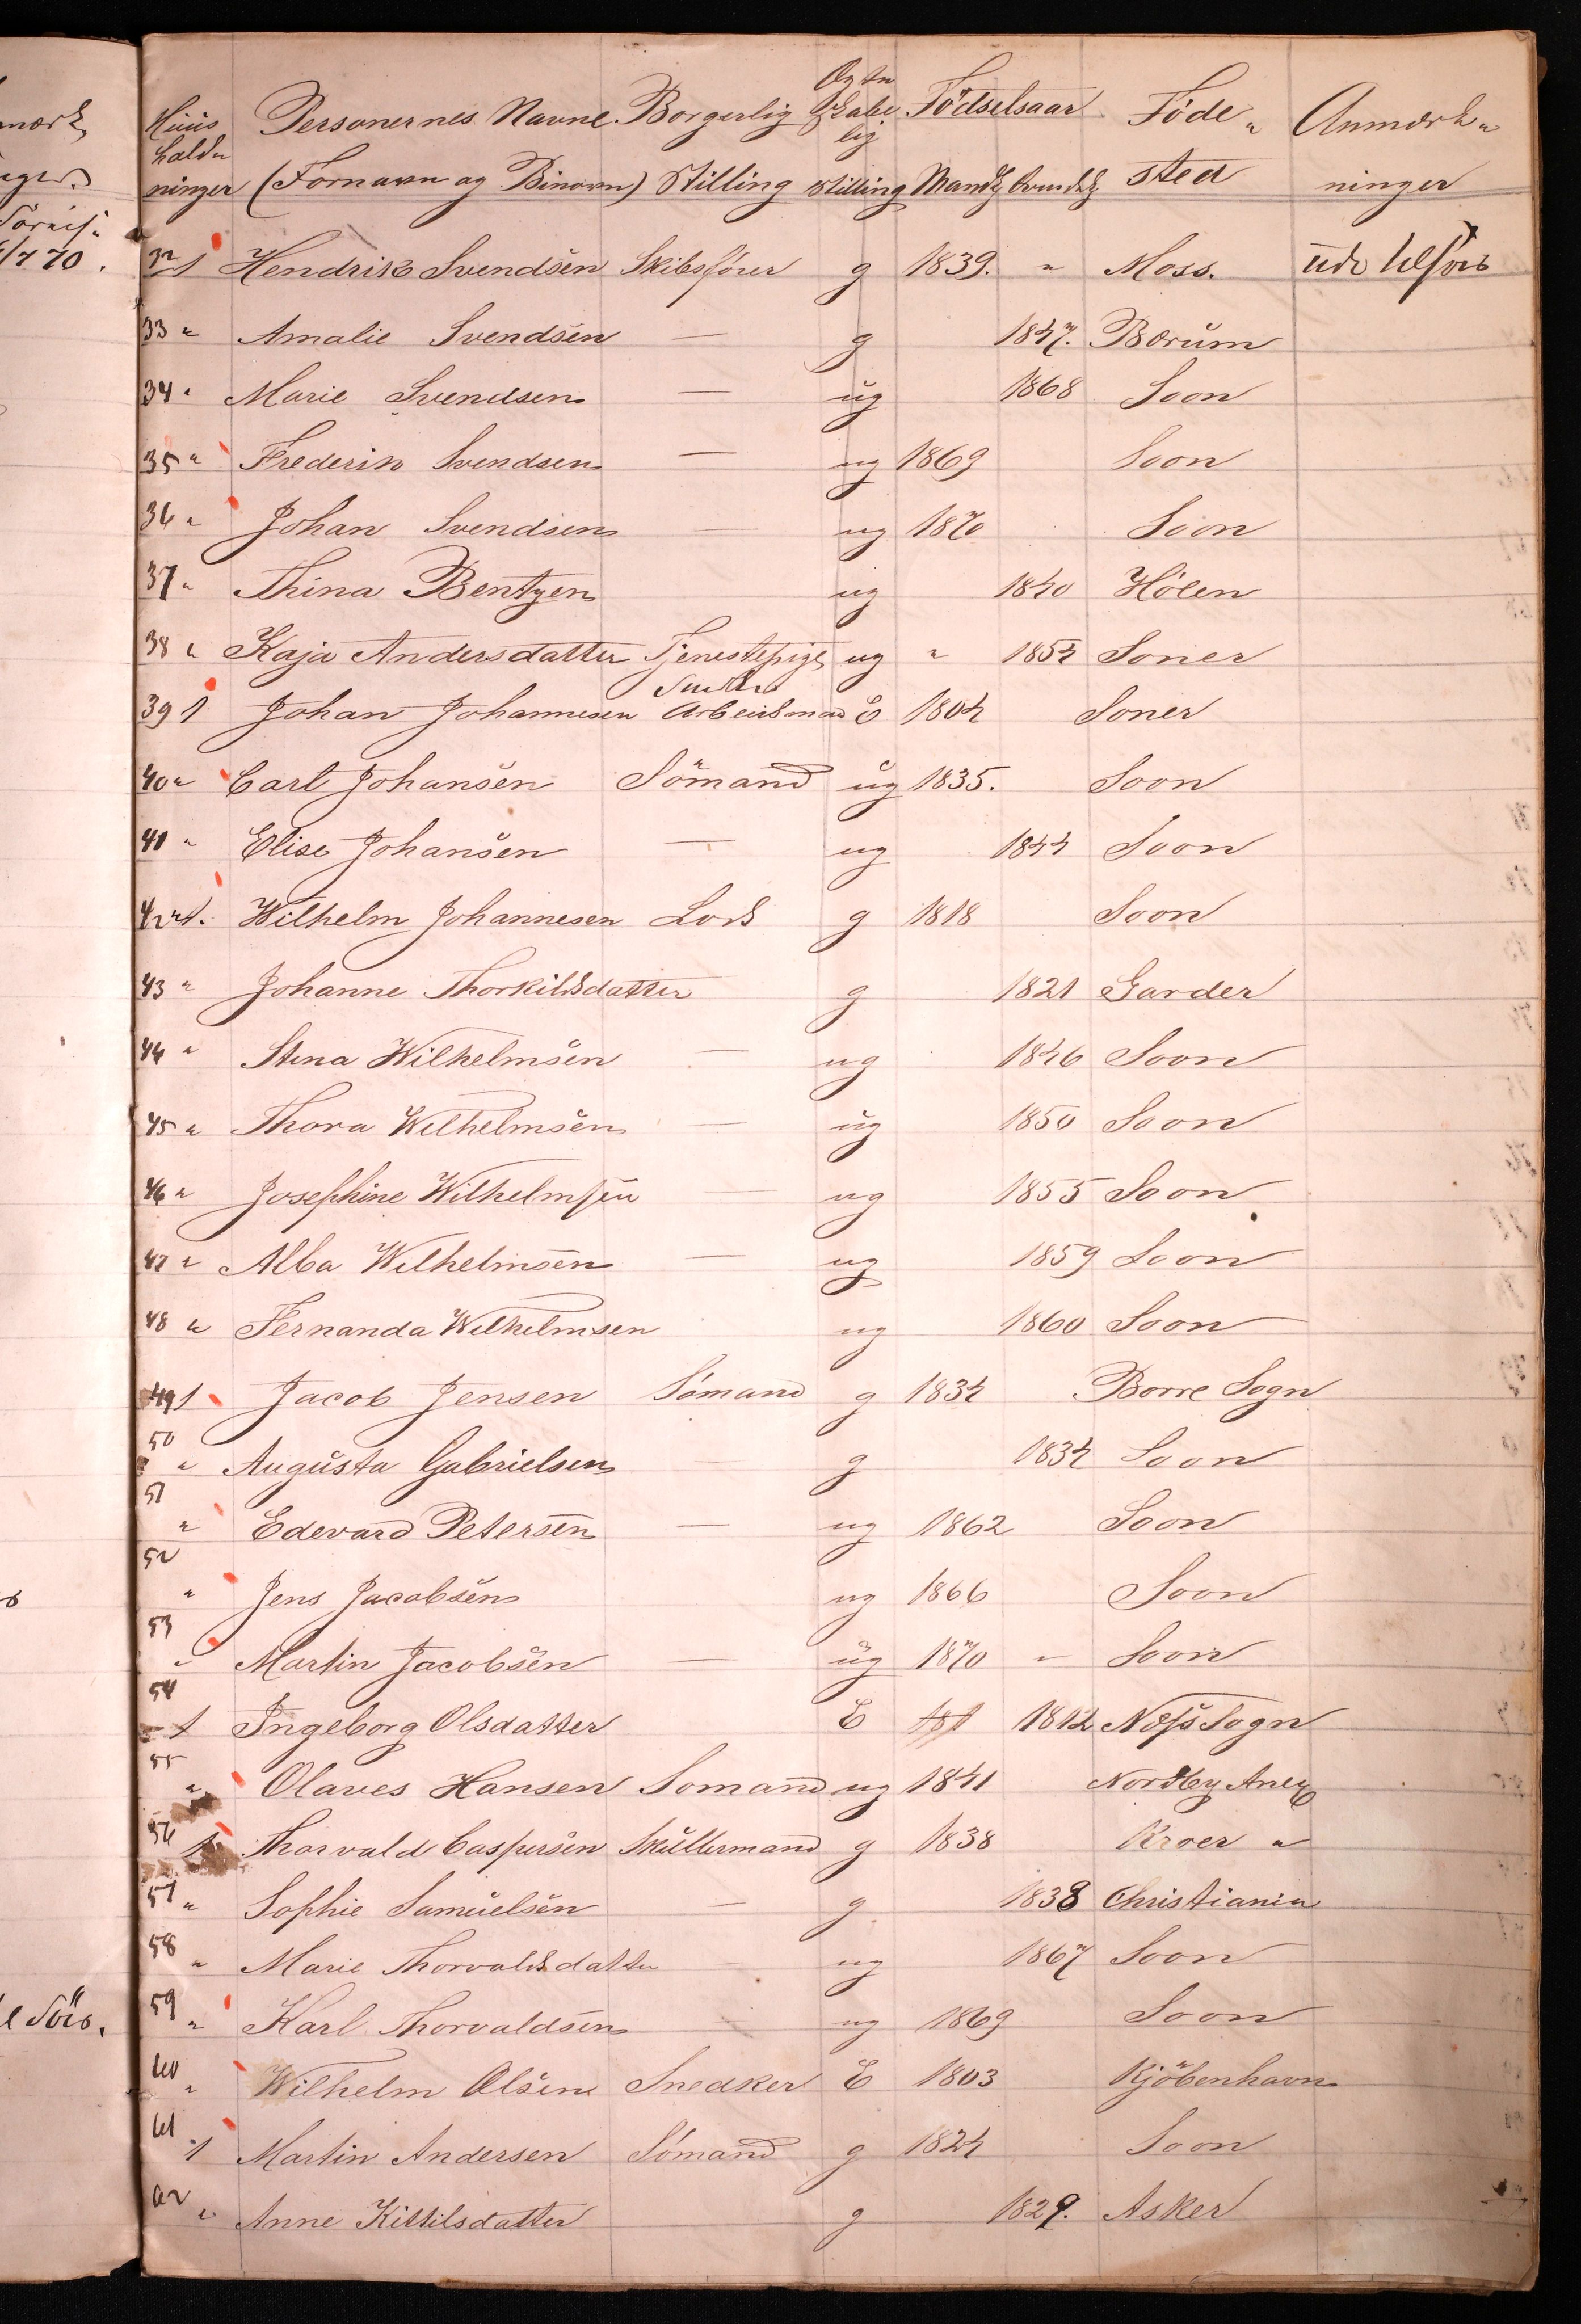 mærk
nger
770.
Huus Personernes Navne Borgerlig Føde Fødselsaar Anmærk
hold
ninger (Fornavn og Binavn) Stilling stilling Mandk Kvindk sted ninger
32 1 Hendrik Svendsen Skibsfører g 1839. " Moss. ude
33 " Amalie Svendsen — g 1847. Bærum
34 " Marie Svendsen — ug 1868 Soon
35 " Frederik Svendsen — ug 1869 Soon
36 " Johan Svendsen — ug 1870 Soon
37 " Thina Bentzen ug 1840 Hölen
38 " Kaja Andersdatter Tjenestepige ug " 1854 Soner
39 1 Johan Johannesen Arbeidsmand 1804 Soner
40 " Carl Johansen Sömand ug 1835. Soon
41 " Elise Johansen — ug 1844 Soon
42 1. Wilhelm Johannesen Lods g 1818 Soon
43 " Johanne Thorkildsdatter g 1821 Garder
44 " Stina Wilhelmsen — ug 1846 Soon
45 " Thora Wilhelmsen — ug 1850 Soon
46 " Josephine Wilhelmsen — ug 1855 Soon
47 " Alba Wilhelmsen — ug 1859 Soon
48 " Fernanda Wilhelmsen ug 1860 Soon
49 1 Jacob Jensen Sömand g 1834 Borre Sogn
50 " Augusta Gabrielsen — g 1834 Soon
51 " Edevard Petersen — ug 1862 Soon
52 " Jens Jacobsen ug 1866 Soon
53 " Martin Jacobsen — ug 1870 " Soon
54 1 Ingeborg Olsdatter E 1812 Næss Sogn
55 " Olaves Hansen Somand ug 1841 Nordby Anex
56 1 Thorvald Caspersen Sküllermand g 1838 Kroer "
57 " Sophie Samuelsen — g 1838 Christiania
58 " Marie Thorvaldsdatter — ug 1867 Soon
59 " Karl Thorvaldsen — ug 1869 Soon
60 " Wilhelm Olsen Snedker E 1803 Kjöbenhavn
61 1 Martin Andersen Sömand g 1824 Soon
62 " Anne Kittilsdatter g 1829. Asker